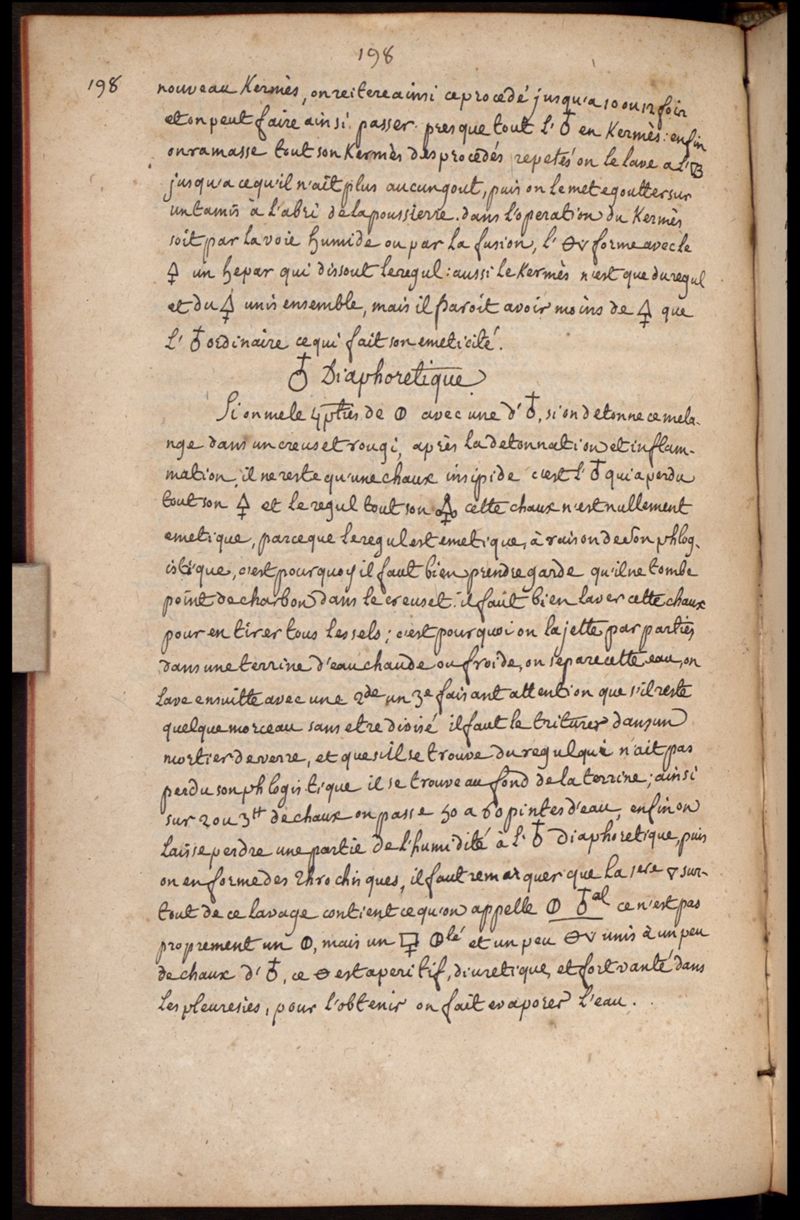 198
198
nouveau Kermès, on reitere ainsi ce procedé jusqu'a 10 ou 12 fois
et on peut faire ainsi passer presque tout l' ♁ en Kermès: enfin
on ramasse tout son Kermès des procedés repetés on le lave a l'
jusqu'a cequ'il n'ait plus aucun gout, puis on le met egoutter sur
un tamis à l'abri de la poussierre. dans l'operation du Kermès
soit par la voie humide ou par la fusion, l' forme avec le
🜍 un hepar qui dissout le regul: aussi le Kermès n'est que du regul
et du 🜍 unis ensemble, mais il paroit avoir moins de 🜍 que
l' ♁ ordinaire ce qui fait son emeticité.
♁ Diaphoretique
Si on mele pties de 🜕 avec une d' ♁, si on detonne ce mela-
nge dans un creuset rougi, après la detonnation et inflam-
mation, il ne reste qu'une chaux insipide c'est l' ♁ qui a perdu
tout son 🜍 et le regul tout son cette chaux n'est nullement
emetique, parceque le regul est emetique, à raison de son phlog-
istique, c'est pourquoy il faut bien prendre garde qu'il ne tombe
point de charbon dans le creuset. il faut bien laver cette chaux
pour en tirer tous les sels; c'est pourquoi on la jette par parties
dans une terrine d'eau chaude ou froide, on separe cette eau, on
lave ensuitte avec une 2de un 3e faisant attention que s'il reste
quelque morceau sans etre divisé il faut le triturer dans un
mortier de verre, et que s'il se trouve du regul qui n'ait pas
perdu son phlogistique il se trouve au fond de la terrine; ainsi
sur 2 ou 3 tt de chaux on passe 50 a 60 pintes d'eau, enfin on
laisse perdre une partie de l'humidité à l' ♁ Diaphoretique, puis
on en forme des throchisques, il faut remarquer que la 1ere 🜄 sur-
tout de ce lavage contient ce qu'on appelle 🜕 ♁al ce n'est pas
proprement un 🜕, mais un 🜕lé et un peu unis à un peu
de chaux d' ♁, ce 🜔 est aperitif, diuretique, et fort vanté dans
les pleuresies, pour l'obtenir on fait evaporer l'eau.